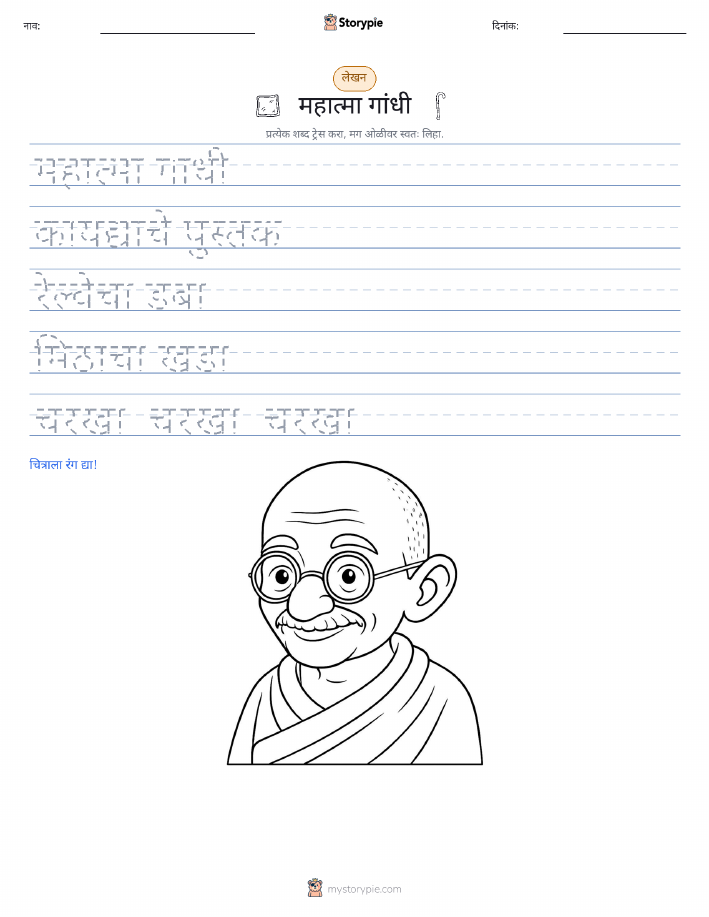 नाव:
Storypie
दिनांक:
लेखन
महात्मा गांधी
प्रत्येक शब्द ट्रेस करा, मग ओळीवर स्वतः लिहा.
महात्मा गांधी
कायद्याचे पुस्तक
रेल्वेचा डबा
मिठाचा खडा
चरखा चरखा चरखा
चित्राला रंग द्या!
mystorypie.com